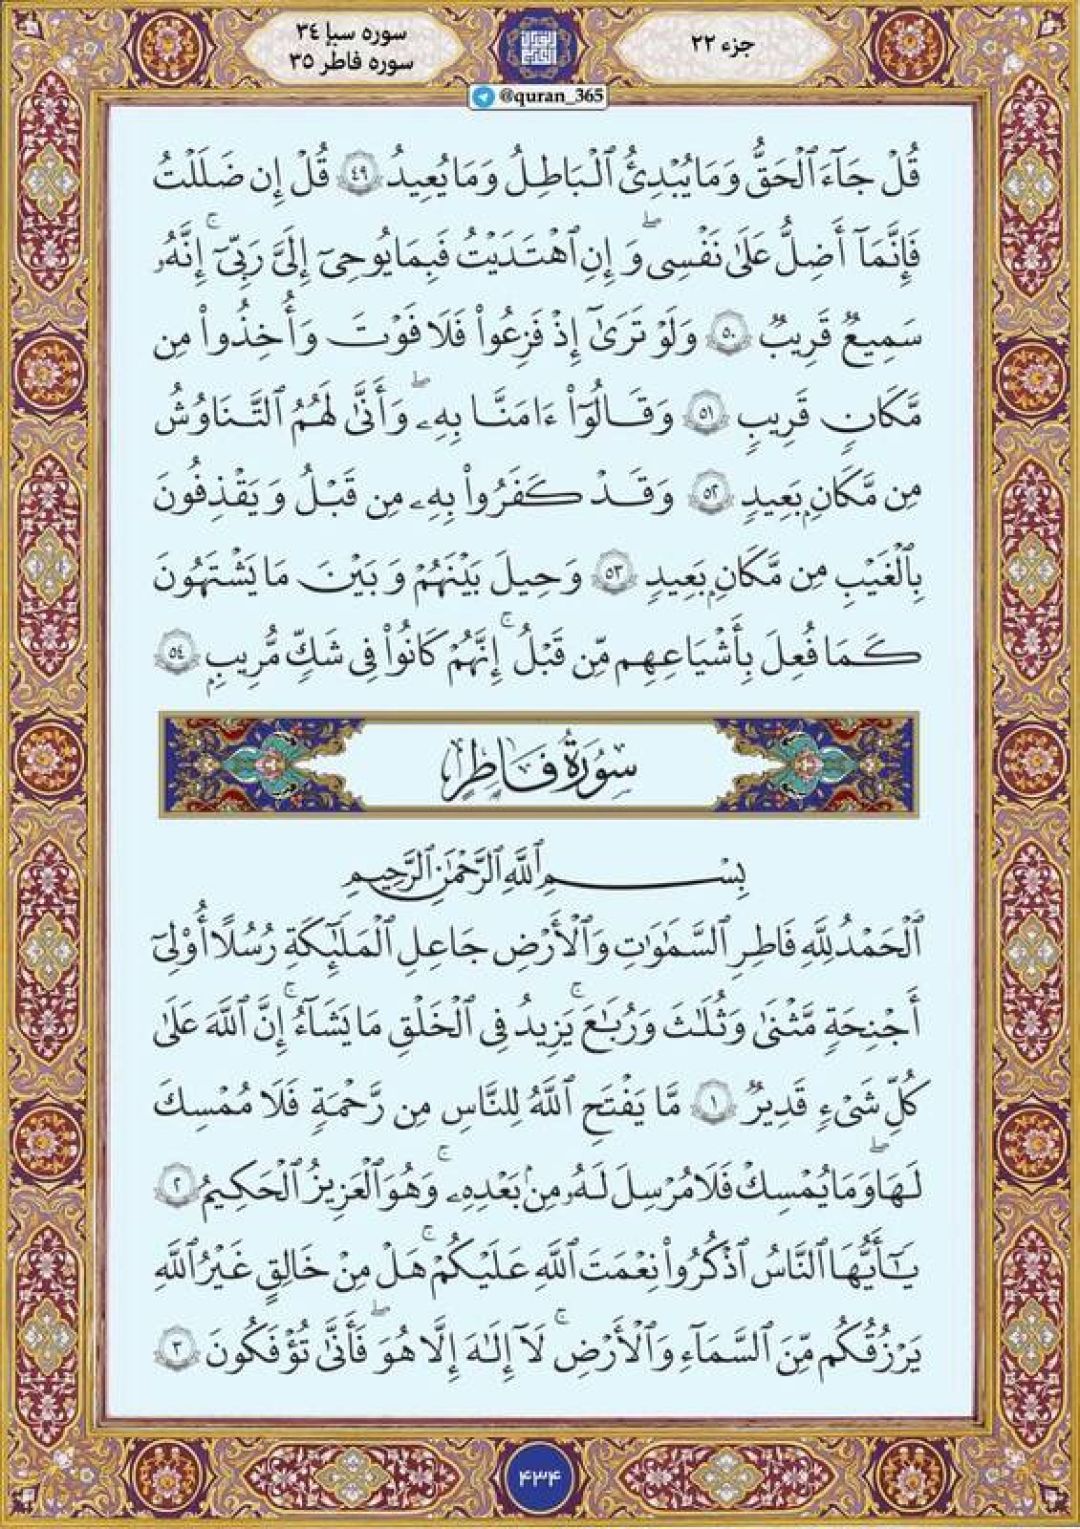 جزء ۲۲
سوره سبإ ۳٤
سوره فاطر ۳۵
@quran_365
قُلْ جَآءَ ٱلْحَقُّ وَمَا يُبْدِئُ ٱلْبَاطِلُ وَمَا يُعِيدُ ٤٩ قُلْ إِن ضَلَلْتُ
فَإِنَّمَآ أَضِلُّ عَلَىٰ نَفْسِىۖ وَإِنِ ٱهْتَدَيْتُ فَبِمَا يُوحِىٓ إِلَىَّ رَبِّىٓۚ إِنَّهُۥ
سَمِيعٌ قَرِيبٌ ٥٠ وَلَوْ تَرَىٰٓ إِذْ فَزِعُوا۟ فَلَا فَوْتَ وَأُخِذُوا۟ مِن
مَّكَانٍ قَرِيبٍ ٥١ وَقَالُوٓا۟ ءَامَنَّا بِهِۦۖ وَأَنَّىٰ لَهُمُ ٱلتَّنَاوُشُ
مِن مَّكَانٍۭ بَعِيدٍ ٥٢ وَقَدْ كَفَرُوا۟ بِهِۦ مِن قَبْلُ وَيَقْذِفُونَ
بِٱلْغَيْبِ مِن مَّكَانٍۭ بَعِيدٍ ٥٣ وَحِيلَ بَيْنَهُمْ وَبَيْنَ مَا يَشْتَهُونَ
كَمَا فُعِلَ بِأَشْيَاعِهِم مِّن قَبْلُۚ إِنَّهُمْ كَانُوا۟ فِى شَكٍّ مُّرِيبٍۭ ٥٤
سُورَةُ فَاطِرٍ
بِسْمِ ٱللَّهِ ٱلرَّحْمَٰنِ ٱلرَّحِيمِ
ٱلْحَمْدُ لِلَّهِ فَاطِرِ ٱلسَّمَٰوَٰتِ وَٱلْأَرْضِ جَاعِلِ ٱلْمَلَٰٓئِكَةِ رُسُلًا أُو۟لِىٓ
أَجْنِحَةٍ مَّثْنَىٰ وَثُلَٰثَ وَرُبَٰعَۚ يَزِيدُ فِى ٱلْخَلْقِ مَا يَشَآءُۚ إِنَّ ٱللَّهَ عَلَىٰ
كُلِّ شَىْءٍ قَدِيرٌ ١ مَّا يَفْتَحِ ٱللَّهُ لِلنَّاسِ مِن رَّحْمَةٍ فَلَا مُمْسِكَ
لَهَاۖ وَمَا يُمْسِكْ فَلَا مُرْسِلَ لَهُۥ مِنۢ بَعْدِهِۦۚ وَهُوَ ٱلْعَزِيزُ ٱلْحَكِيمُ ٢
يَٰٓأَيُّهَا ٱلنَّاسُ ٱذْكُرُوا۟ نِعْمَتَ ٱللَّهِ عَلَيْكُمْۚ هَلْ مِنْ خَالِقٍ غَيْرُ ٱللَّهِ
يَرْزُقُكُم مِّنَ ٱلسَّمَآءِ وَٱلْأَرْضِۚ لَآ إِلَٰهَ إِلَّا هُوَۖ فَأَنَّىٰ تُؤْفَكُونَ ٣
۴۳۴